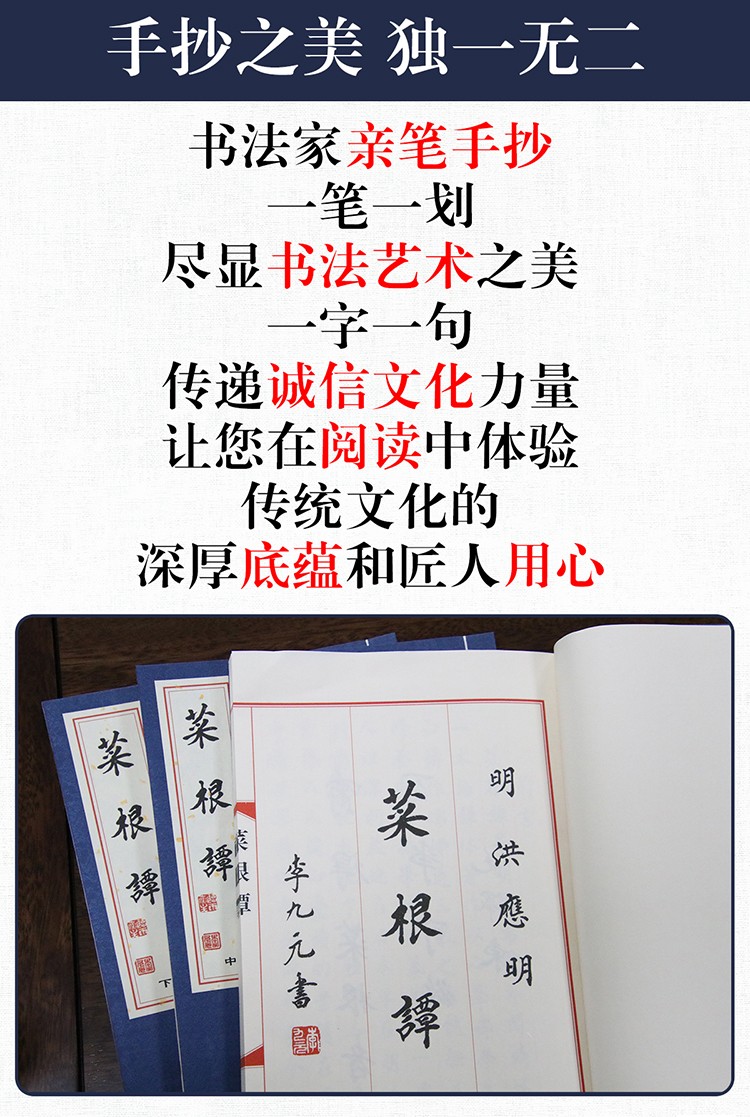 手抄之美 独一无二
书法家亲笔手抄
一笔一划
尽显书法艺术之美
一字一句
传递诚信文化力量
让您在阅读中体验
传统文化的
深厚底蕴和匠人用心
明 洪應明
菜根譚
李九元書
菜根譚
菜根譚
中
菜根譚
下